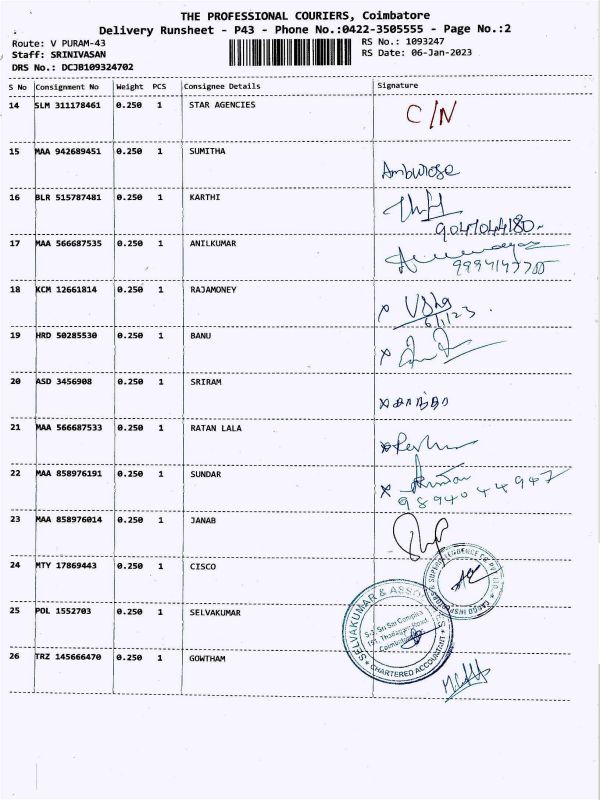 THE PROFESSIONAL COURIERS, Coimbatore
Delivery Runsheet - P43 - Phone No.:0422-3505555 - Page No.:2
Route: V PURAM-43
Staff: SRINIVASAN
DRS No.: DCJB109324702
RS No.: 1093247
RS Date: 06-Jan-2023
S No Consignment No Weight PCS Consignee Details Signature
14 SLM 311178461 0.250 1 STAR AGENCIES C/N
15 MAA 942689451 0.250 1 SUMITHA Ambrose
16 BLR 515787481 0.250 1 KARTHI
9047044180
17 MAA 566687535 0.250 1 ANILKUMAR
18 KCM 12661814 0.250 1 RAJAMONEY Usha
6/1/23
19 HRD 50285530 0.250 1 BANU
20 ASD 3456908 0.250 1 SRIRAM
21 MAA 566687533 0.250 1 RATAN LALA
22 MAA 858976191 0.250 1 SUNDAR
9894044947
23 MAA 858976014 0.250 1 JANAB
24 MTY 17869443 0.250 1 CISCO
25 POL 1552703 0.250 1 SELVAKUMAR
SELVAKUMAR & ASSO
CHARTERED ACCOUNTANTS
26 TRZ 145666470 0.250 1 GOWTHAM